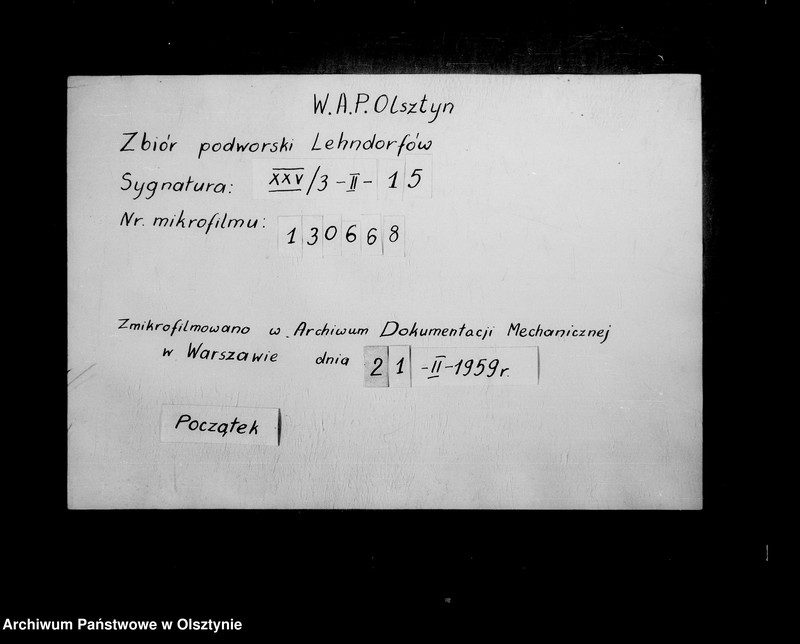 W.A.P. Olsztyn
Zbiór podworski Lehndorfów
Sygnatura: XXV/3-II-15
Nr. mikrofilmu: 130668
Zmikrofilmowano w Archiwum Dokumentacji Mechanicznej
w Warszawie dnia 21-II-1959r.
Początek
Archiwum Państwowe w Olsztynie